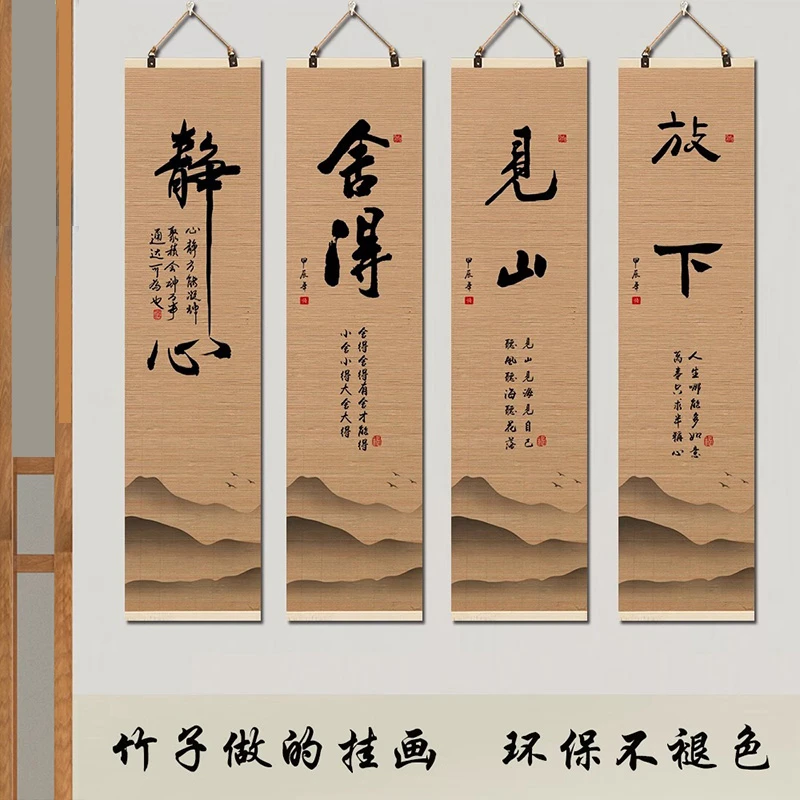 静心
心静方能凝神
聚精会神方事
通达可为也
舍得
甲辰年
舍得舍得有舍才能得
小舍小得大舍大得
见山
甲辰年
见山见海见自己
听风听海听花落
放下
甲辰年
人生哪能多如意
万事只求半称心
竹子做的挂画 环保不褪色